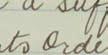 a suff
ts Orde